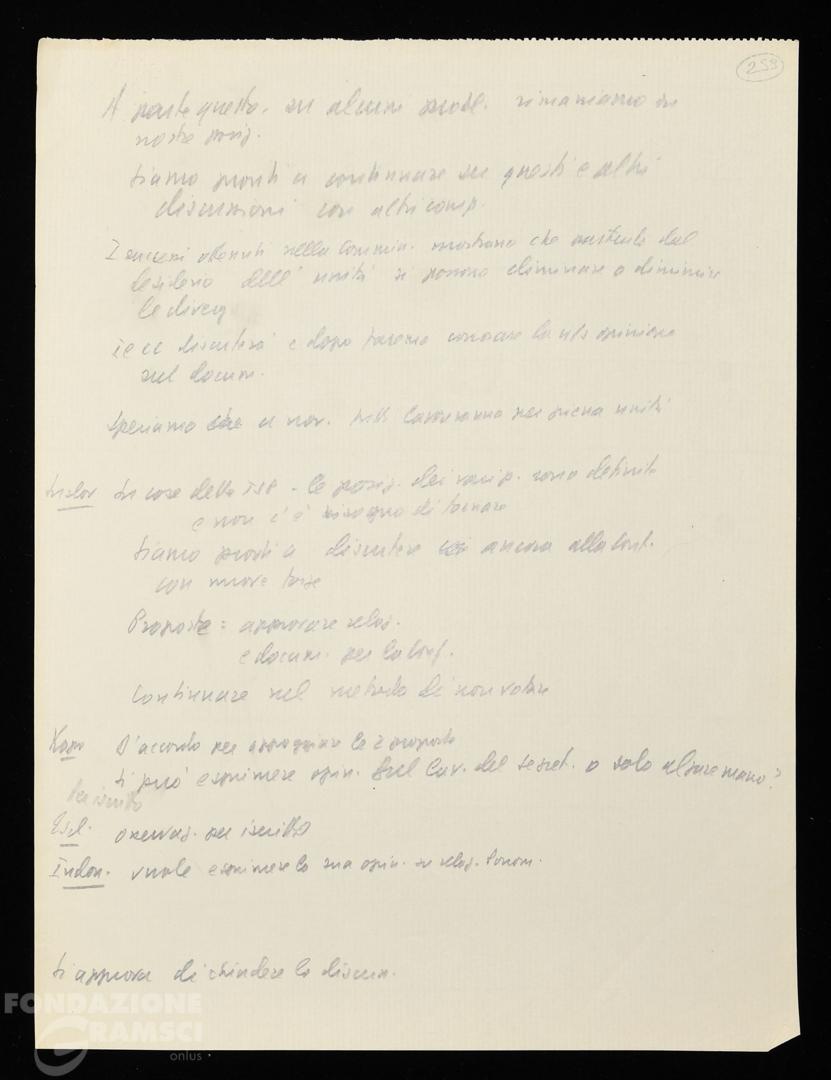 259
A parte questo, su alcuni probl. rimaniamo su
nostre posiz.
Siamo pronti a continuare su questi e altri
discussioni con altri comp.
I successi ottenuti nella Commis. mostrano che partendo dal
desiderio dell'unità si possono eliminare o diminuire
le diverg
Il CC discuterà e dopo faremo conoscere la
sul docum.
Speriamo che a nov. tutti lavoreranno per piena unità
le posiz. dei vari p. sono definite
e non c'è bisogno di tornare
Siamo pronti a discutere ancora alla conf.
con nuove forze
Proposte = approvare relaz.
e docum. per la conf.
Continuare sul metodo di non votare
D'accordo per appoggiare le 2 proposte
Si può esprimere opin. sul lav. del segret. o solo alzare mano?
Per iscritto
osservaz. per iscritto
Indon. vuole esprimere la sua opin. su relaz.
Si approva di chiudere la discuss.
FONDAZIONE
GRAMSCI
onlus